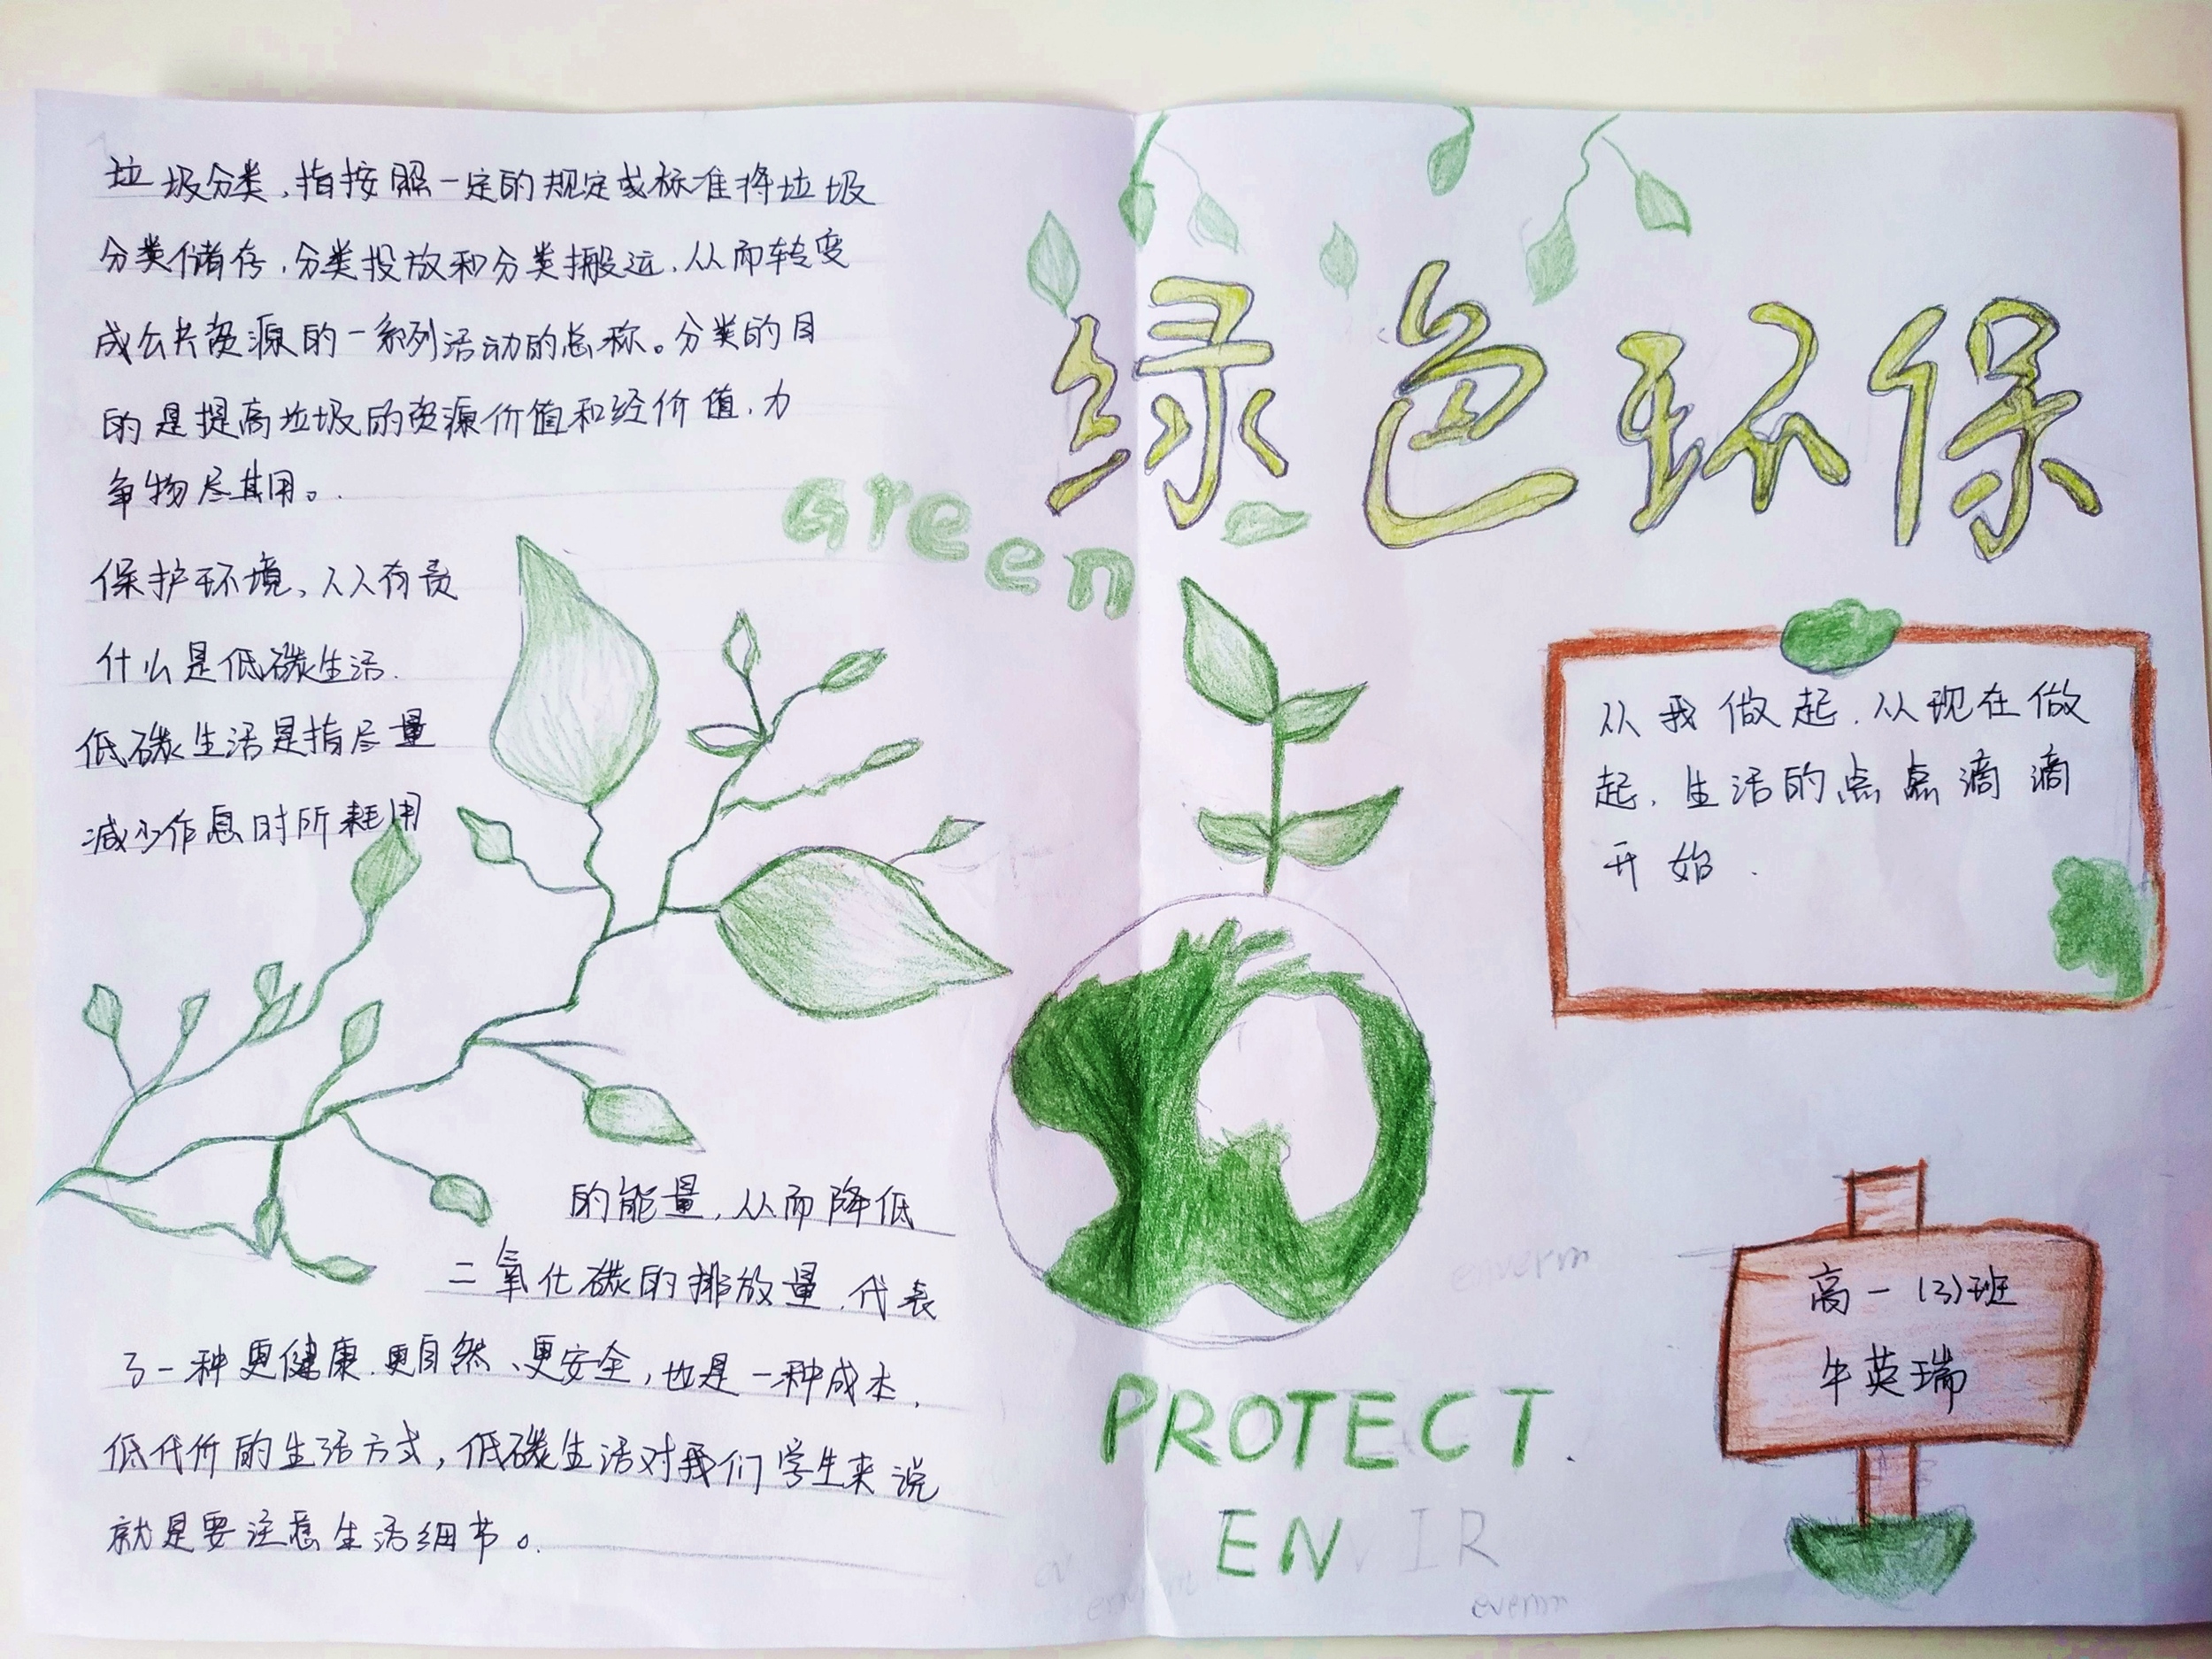 垃圾分类,指按照一定的规定或标准将垃圾
分类储存,分类投放和分类搬运,从而转变
成公共资源的一系列活动的总称。分类的目
的是提高垃圾的资源价值和经价值,力
争物尽其用。
保护环境,人人有责
什么是低碳生活.
低碳生活是指尽量
减少作息时所耗用
的能量,从而降低
二氧化碳的排放量,代表
了一种更健康.更自然、更安全,也是一种成本,
低代价的生活方式,低碳生活对我们学生来说
就是要注意生活细节。
绿色环保
Green
从我做起.从现在做
起.生活的点点滴滴
开始.
PROTECT.
ENVIR
enverm
evernm
高一(3)班
牛英瑞